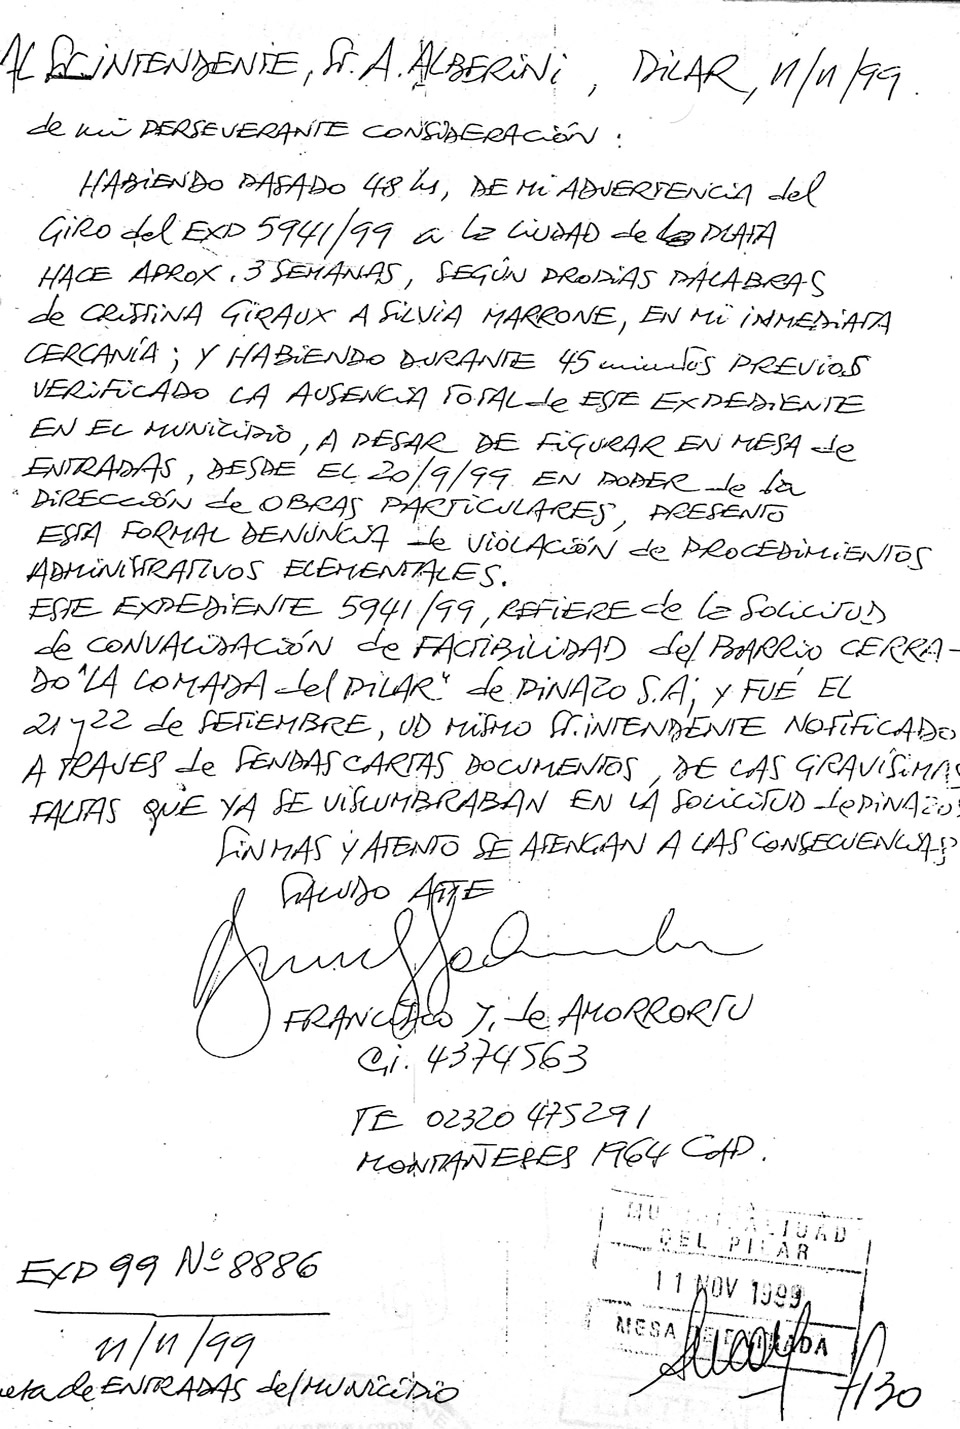 AL Sr. INTENDENTE, Sr. A. ALBERINI, PILAR, 11/11/99.
de mi PERSEVERANTE CONSIDERACIÓN:
HABIENDO PASADO 48 hs, DE MI ADVERTENCIA del
GIRO del EXP 5941/99 a la CIUDAD de la PLATA
HACE APROX. 3 SEMANAS, SEGÚN PROPIAS PALABRAS
de CRISTINA GIRAUX A SILVIA MARRONE, EN MI IMMEDIATA
CERCANÍA; Y HABIENDO DURANTE 45 minutos PREVIOS
VERIFICADO LA AUSENCIA TOTAL de ESTE EXPEDIENTE
EN EL MUNICIPIO, A PESAR DE FIGURAR EN MESA de
ENTRADAS, DESDE EL 20/9/99 EN PODER de la
DIRECCIÓN de OBRAS PARTICULARES, PRESENTO
ESTA FORMAL DENUNCIA de VIOLACIÓN de PROCEDIMIENTOS
ADMINISTRATIVOS ELEMENTALES.
ESTE EXPEDIENTE 5941/99, REFIERE de la SOLICITUD
de CONVALIDACIÓN de FACTIBILIDAD del BARRIO CERRA-
DO "LA LOMADA del PILAR" de PINAZO S.A; y FUÉ EL
21 y 22 de SETIEMBRE, UD MISMO Sr. INTENDENTE NOTIFICADO
A TRAVES de SENDAS CARTAS DOCUMENTOS, DE LAS GRAVÍSIMAS
FALTAS QUE YA SE VISLUMBRABAN EN LA SOLICITUD de PINAZO
SIN MAS Y ATENTO SE ATENGAN A LAS CONSECUENCIAS
SALUDO ATTE
FRANCISCO J. de AMORRORTU
C.I. 4374563
TE 02320 475291
MONTAÑESES 1964 CAP.
MUNICIPALIDAD
DEL PILAR
EXP 99 Nº 8886
11 NOV 1999
MESA DE ENTRADA
11/11/99
7130
de ENTRADAS del MUNICIPIO